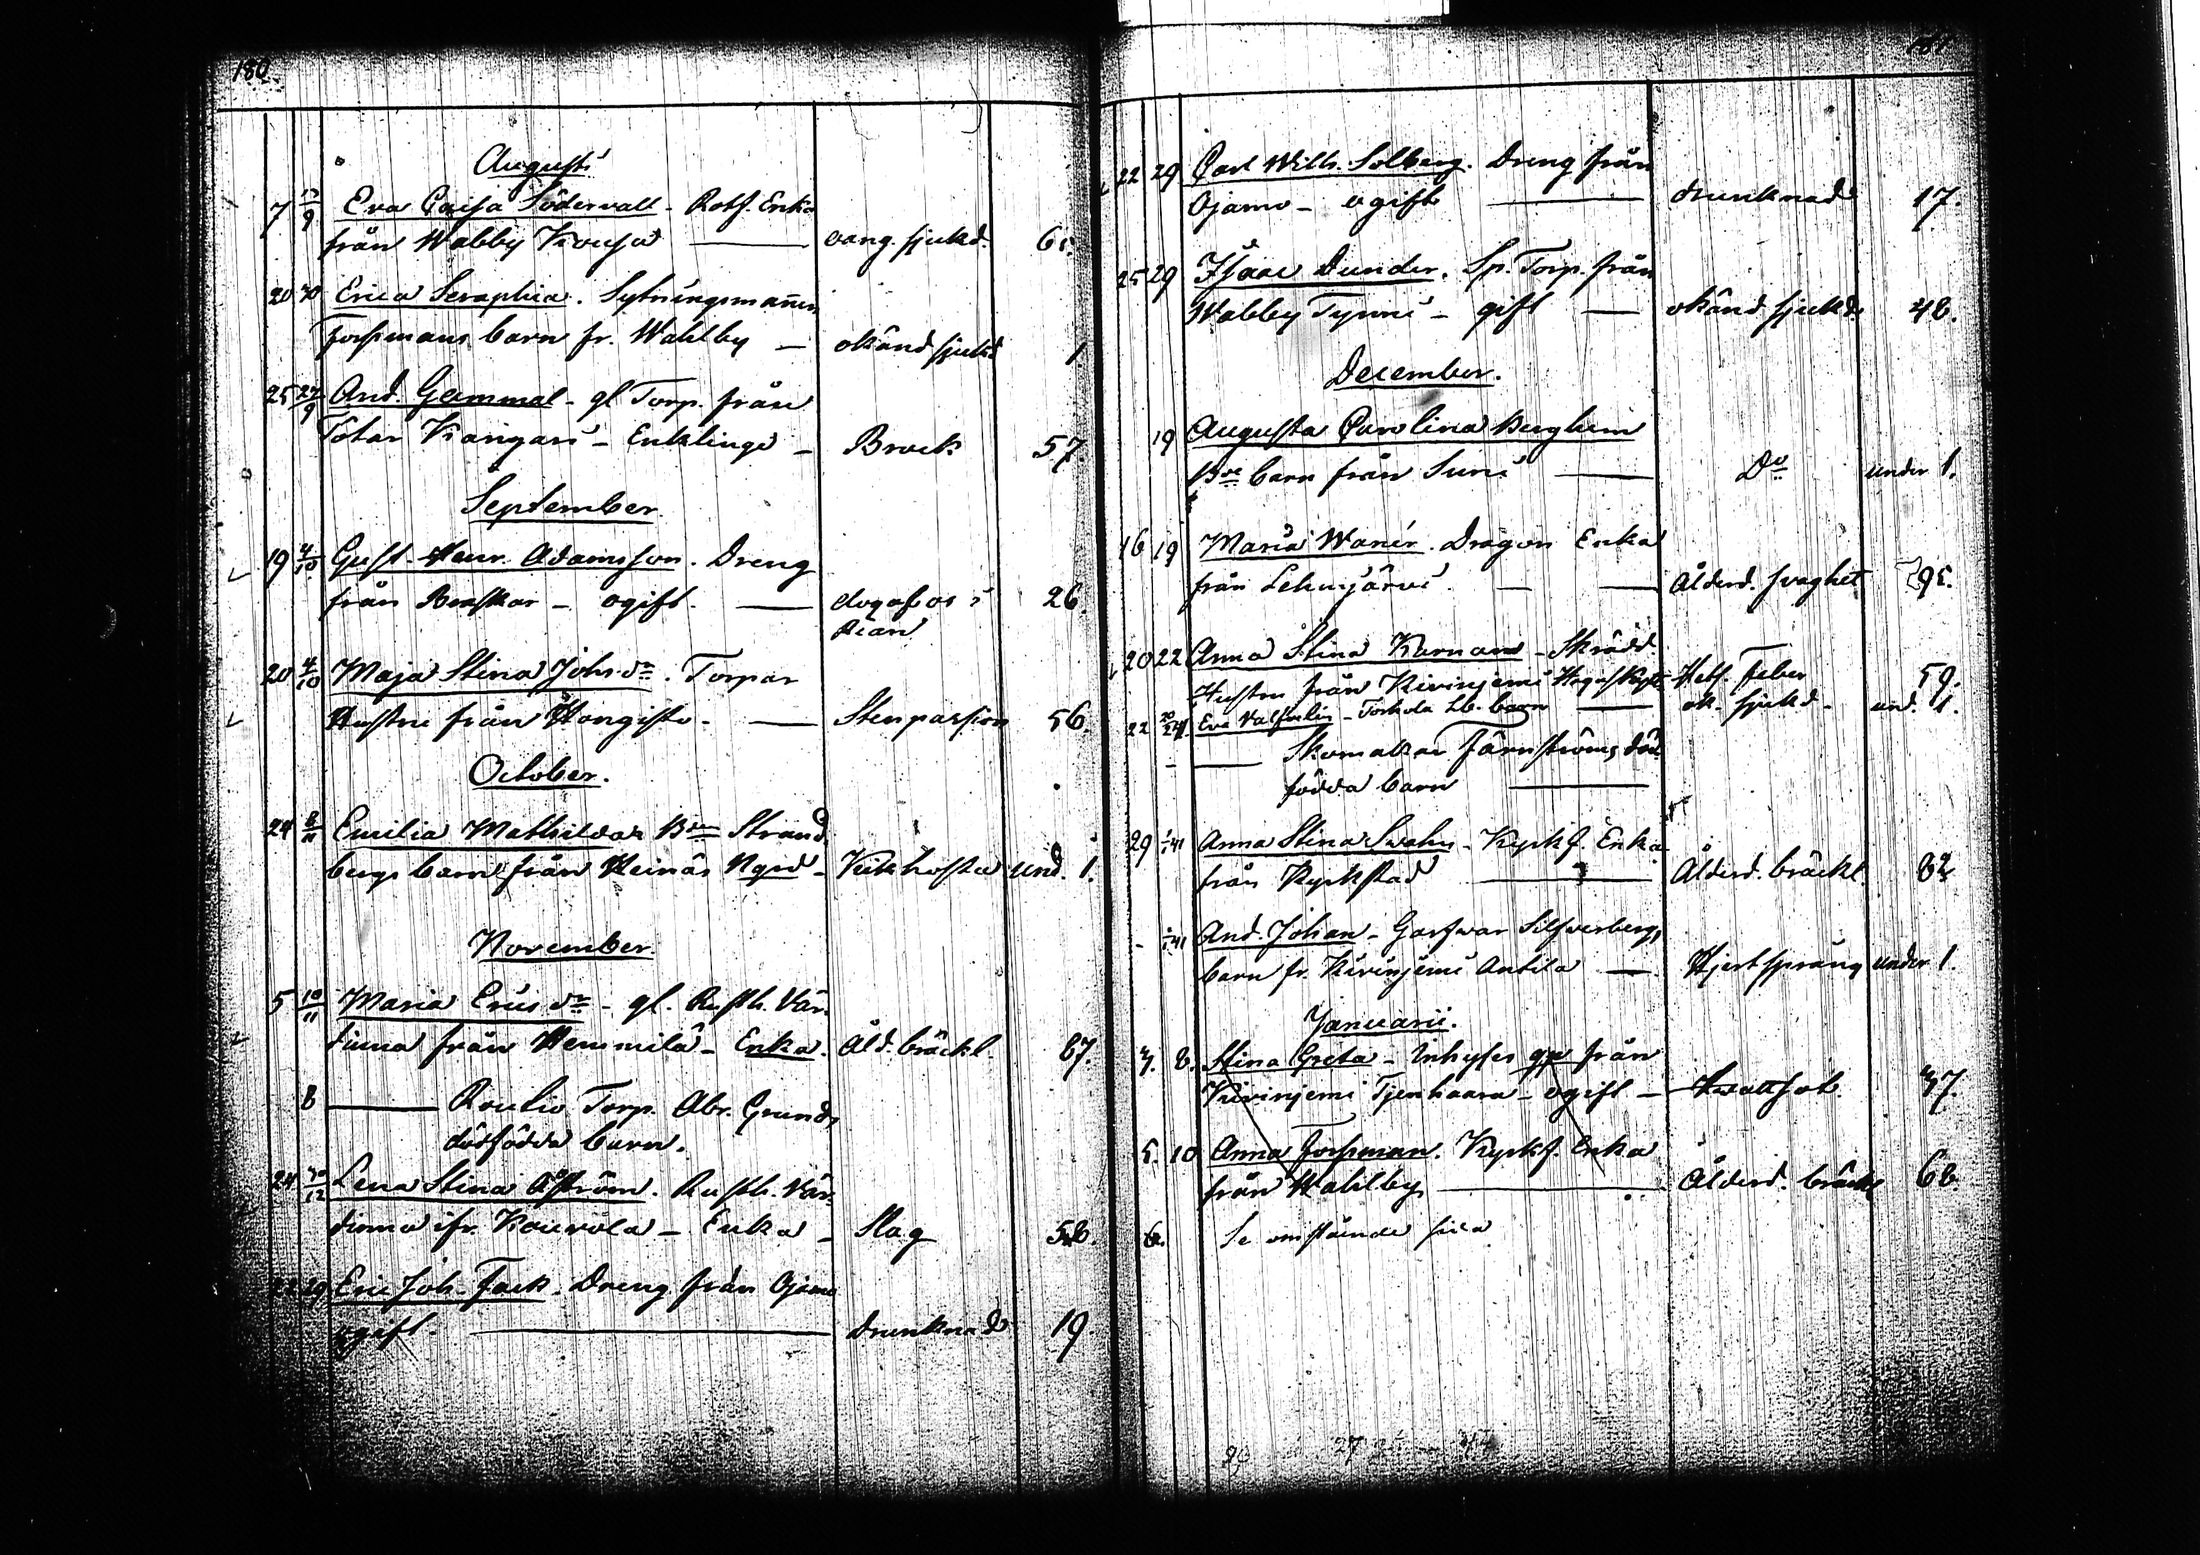 180
Augusti
7 13/9 Eva Caisa Södervall - Rotf. Enka
från Wabby Kouja — vang. sjukd. 65.
20 30 Erica Seraphia. Sytningsmannen
Forsmans barn fr. Wahlby — okänd sjukd 1.
25 27/9 And. Gammal - gl Torp. från
Totar Kangari - Enkling — Brock 57.
September.
19 4/10 Gust. Henr. Adamsson. Dreng
från Backar - ogift. — 26.
20 4/10 Maja Stina Johsdr. Torpar
Hustru från Hongisto - — Stenpassion 56.
October.
24 8/11 Emilia Mathilda Bde Strand
bergs barn från Heinäs Ngrd - Kikhosta und. 1.
November.
5 10/11 Maria Ericsdr - gl. Rusth. Vär-
dinna från Hemmilä - Enka. Åld. bräckl. 87.
8 — Routio Torp. Abr. Grunds
dödfödda barn.
24 20/12 Lena Stina Åström. Rusth. Vär-
dinna ifr. Kouvola - Enka - Slag 58.
22 29 Eric Joh. Fack. Dreng från Ojamo
ogift. — drunknad 19.
181
22 29 Carl Wilh. Solberg. Dreng från
Ojamo - ogift — drunknad 17.
25 29 Isaac Dunder. Sp. Torp. från
Wabby Tynni - gift — okänd sjukd. 48.
December.
19 Augusta Carolina Berghem
Bde barn från Suni — Do under 1.
16 19 Maria Wanér. Dragon Enka
från Lehmjärvi — Ålderd. svaghet 95.
20 22 Anna Stina Karnan - Skrädd
Hustru från Kivinjemi Het. Feber 59.
22 Eva - Torkola Lb. barn — ok. sjukd - und. 1.
— Skomakar Färnströms död
födda barn —
29 1/41 Anna Stina Swahn - Kyrkf. Enka
från Kyrkstad — Ålderd. bräckl. 82
- 1/41 And. Johan - Garfvar Silfverbergs
barn fr. Kivinjemi Antila — Hjertsprång under 1.
Januarii.
3. 8. Stina Greta - Inhyses från
Kivinjemi Tjenhaara - ogift - Wattsot. 37.
5. 10 Anna Forsman. Kyrkf. Enka
från Wahlby — Ålderd. bräckl 68.
6. Se omstående sida